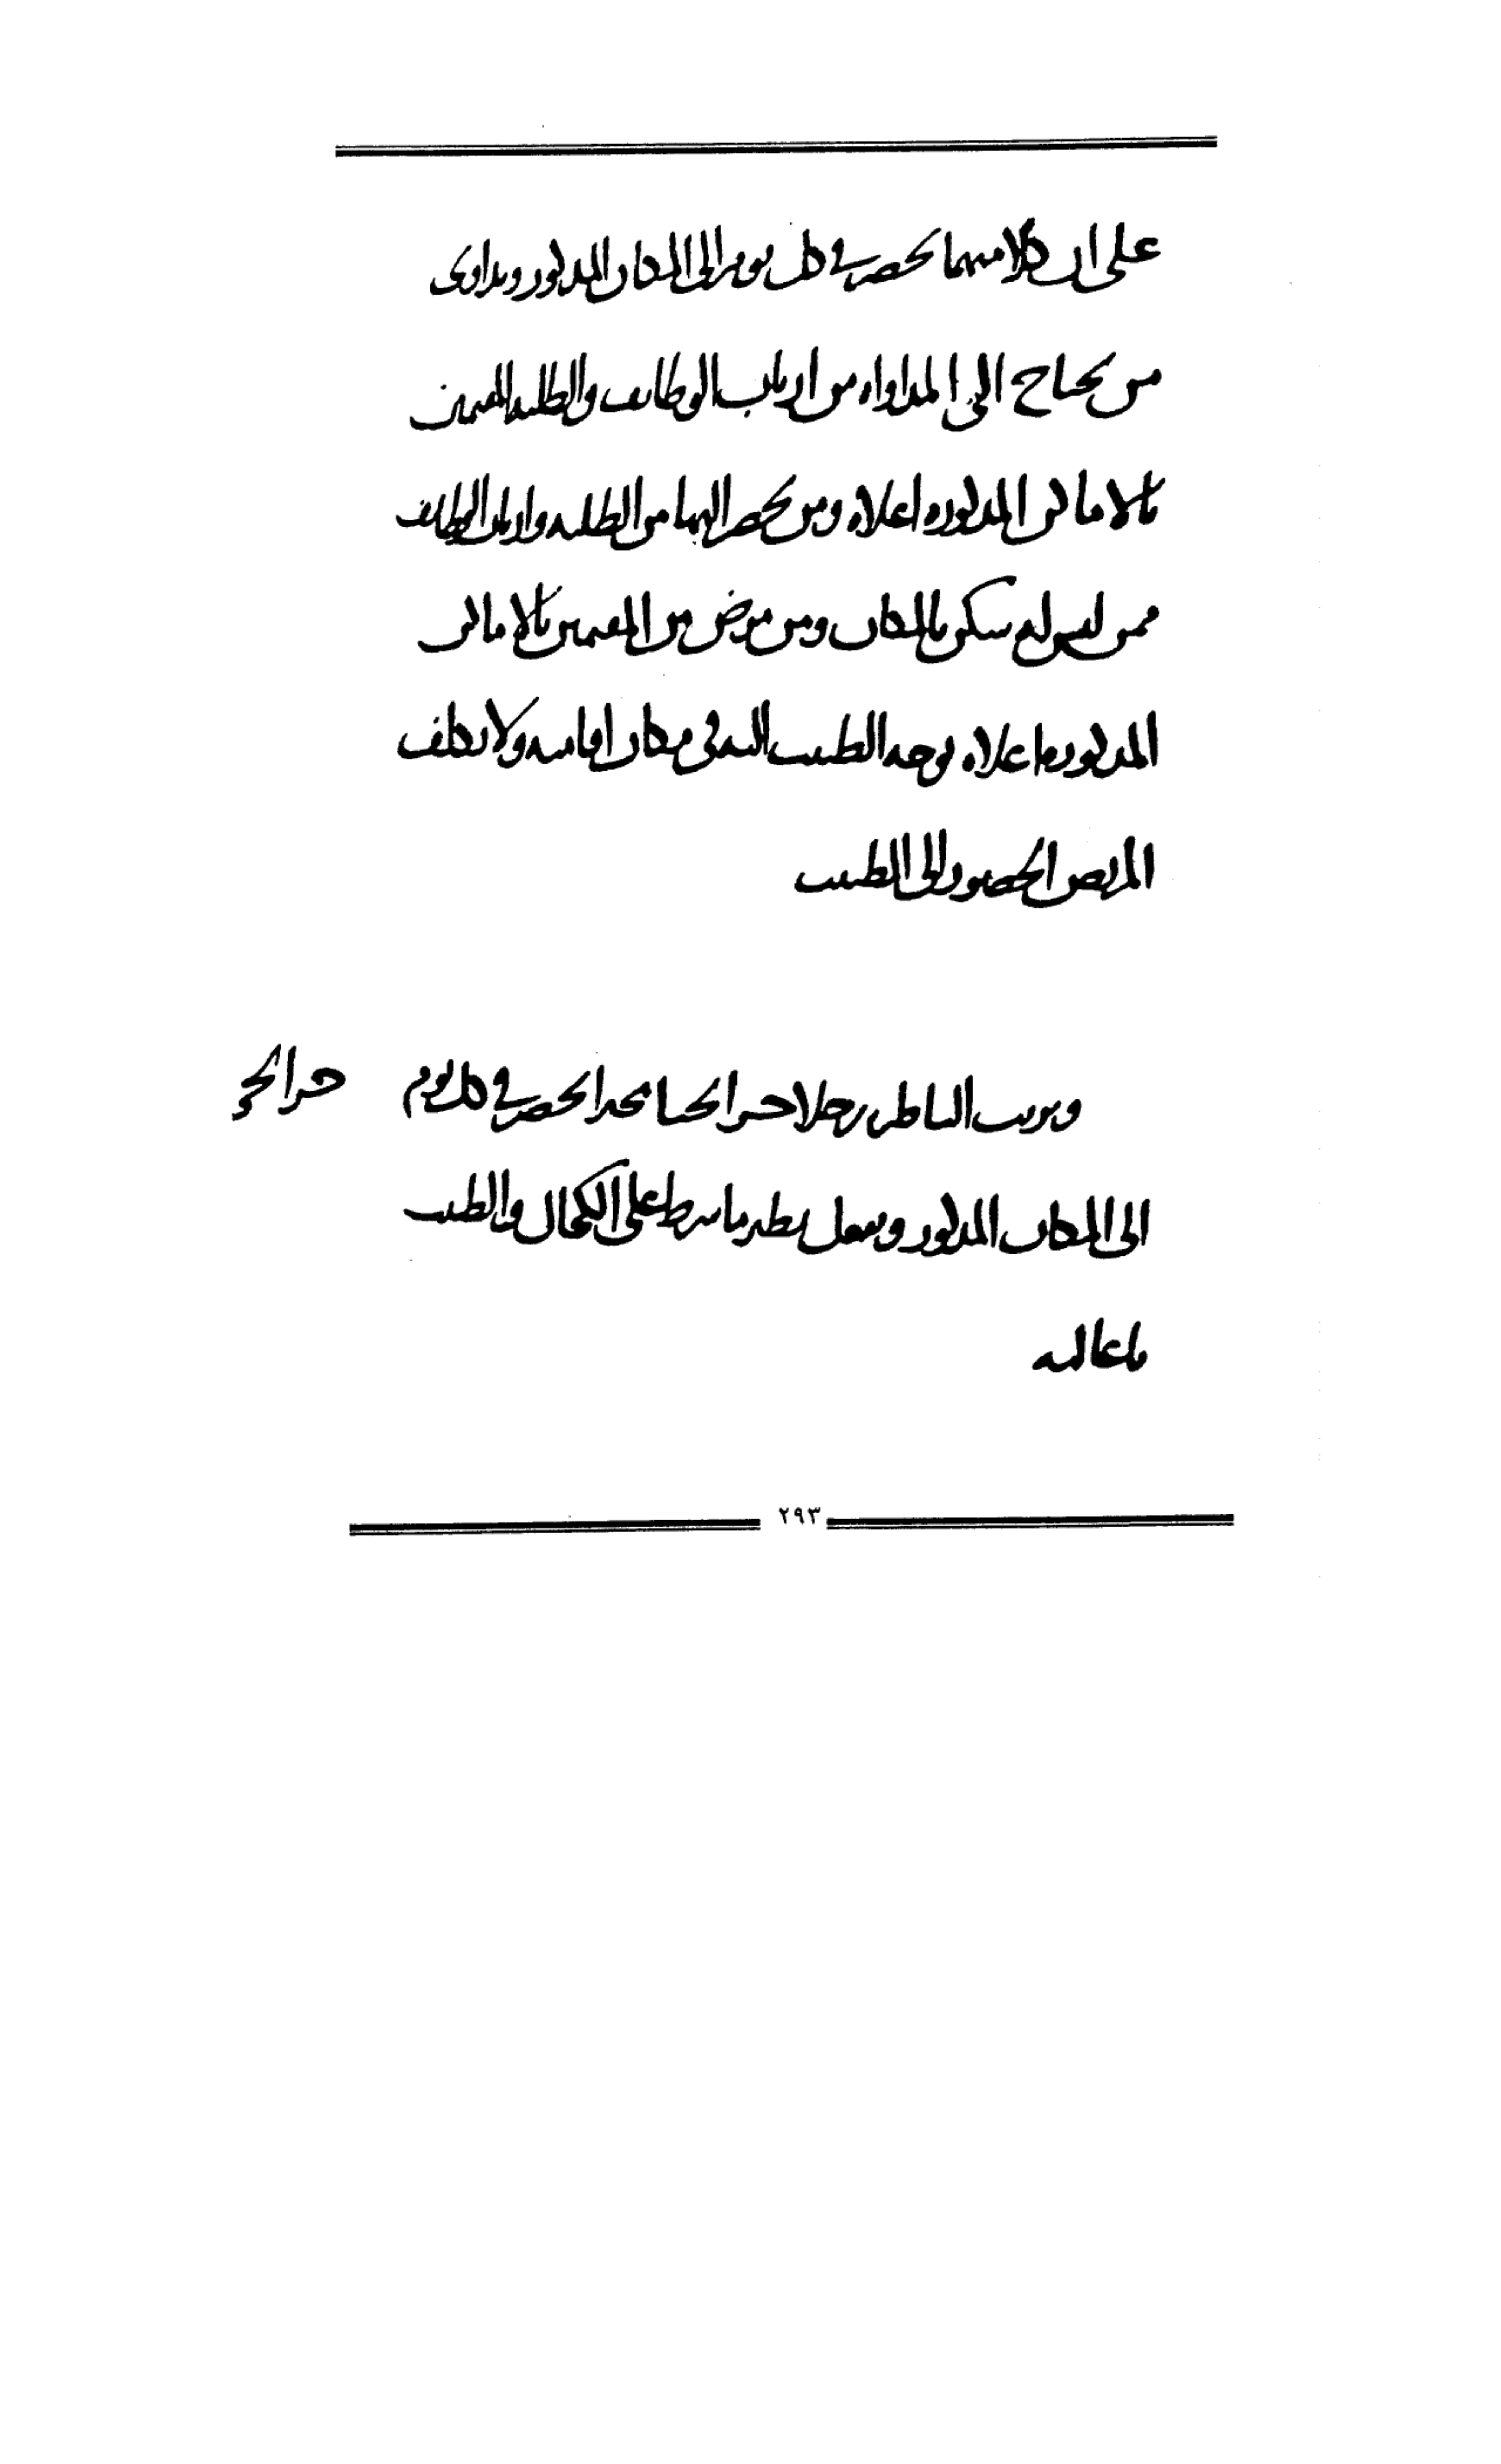 على ان كلا منهما يحضر في كل يوم الى المكان المذكور ويداوى
من يحتاج الى المداواه من ارباب الوظايف والطلبه المقيمين
بالاماكن المذكوره اعلاه ومن يحضر اليها من الطلبه وارباب الوظايف
ممن ليس له سكن بالمكان ومن مرض من المقيمين بالاماكن
المذكوره اعلاه توجه الطبيب اليه في مكان اقامته ولا يكلف
المريض الحضور الى الطبيب
ويرتب الناظر رجلا جرايحيا يحضر في كل يوم
جرايحى
الى المكان المذكور ويعمل نظير ما شرط على الكحال والطبيب
باعاليه
٢٩٣